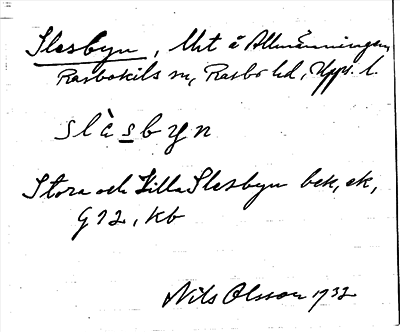 Slasbyn, Utm å Allmänningen,
Rasbokils sn, Rasbo hd, Upps. l.
slàsbyn
Stora och Lilla Slasbyn bek, ek,
G 12, kb
Nils Olsson 1932